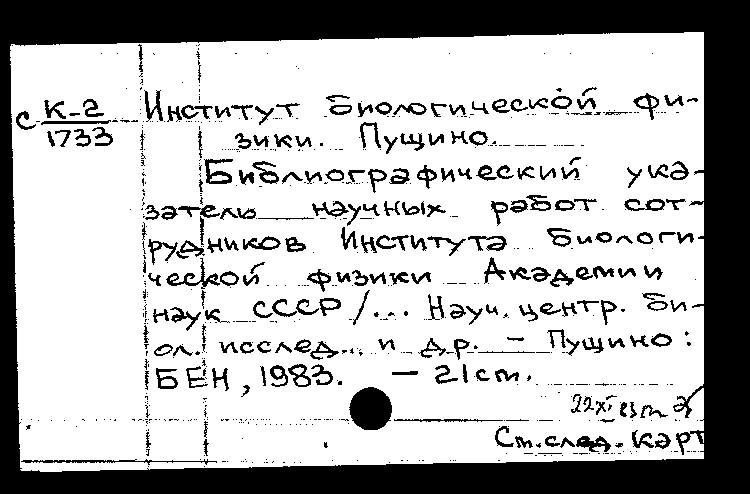 с К-2 Институт биологической фи-
1733 зики. Пущино.
Библиографический ука-
затель научных работ сот-
рудников Института биологи-
ческой физики Академии
наук СССР /... Науч. центр. би-
ол. исслед... и др. - Пущино:
БЕН, 1983. - 21 см.
22 XI
См. след. карт